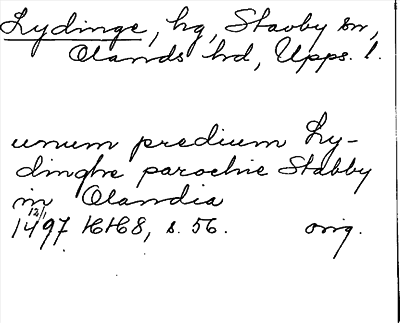 Lydinge, hg, Stavby sn,
Olands hd, Upps. l.
unum predium Ly-
dinghe parochie Stabby
in Olandia
12/1
1497 HH8, s. 56. orig.